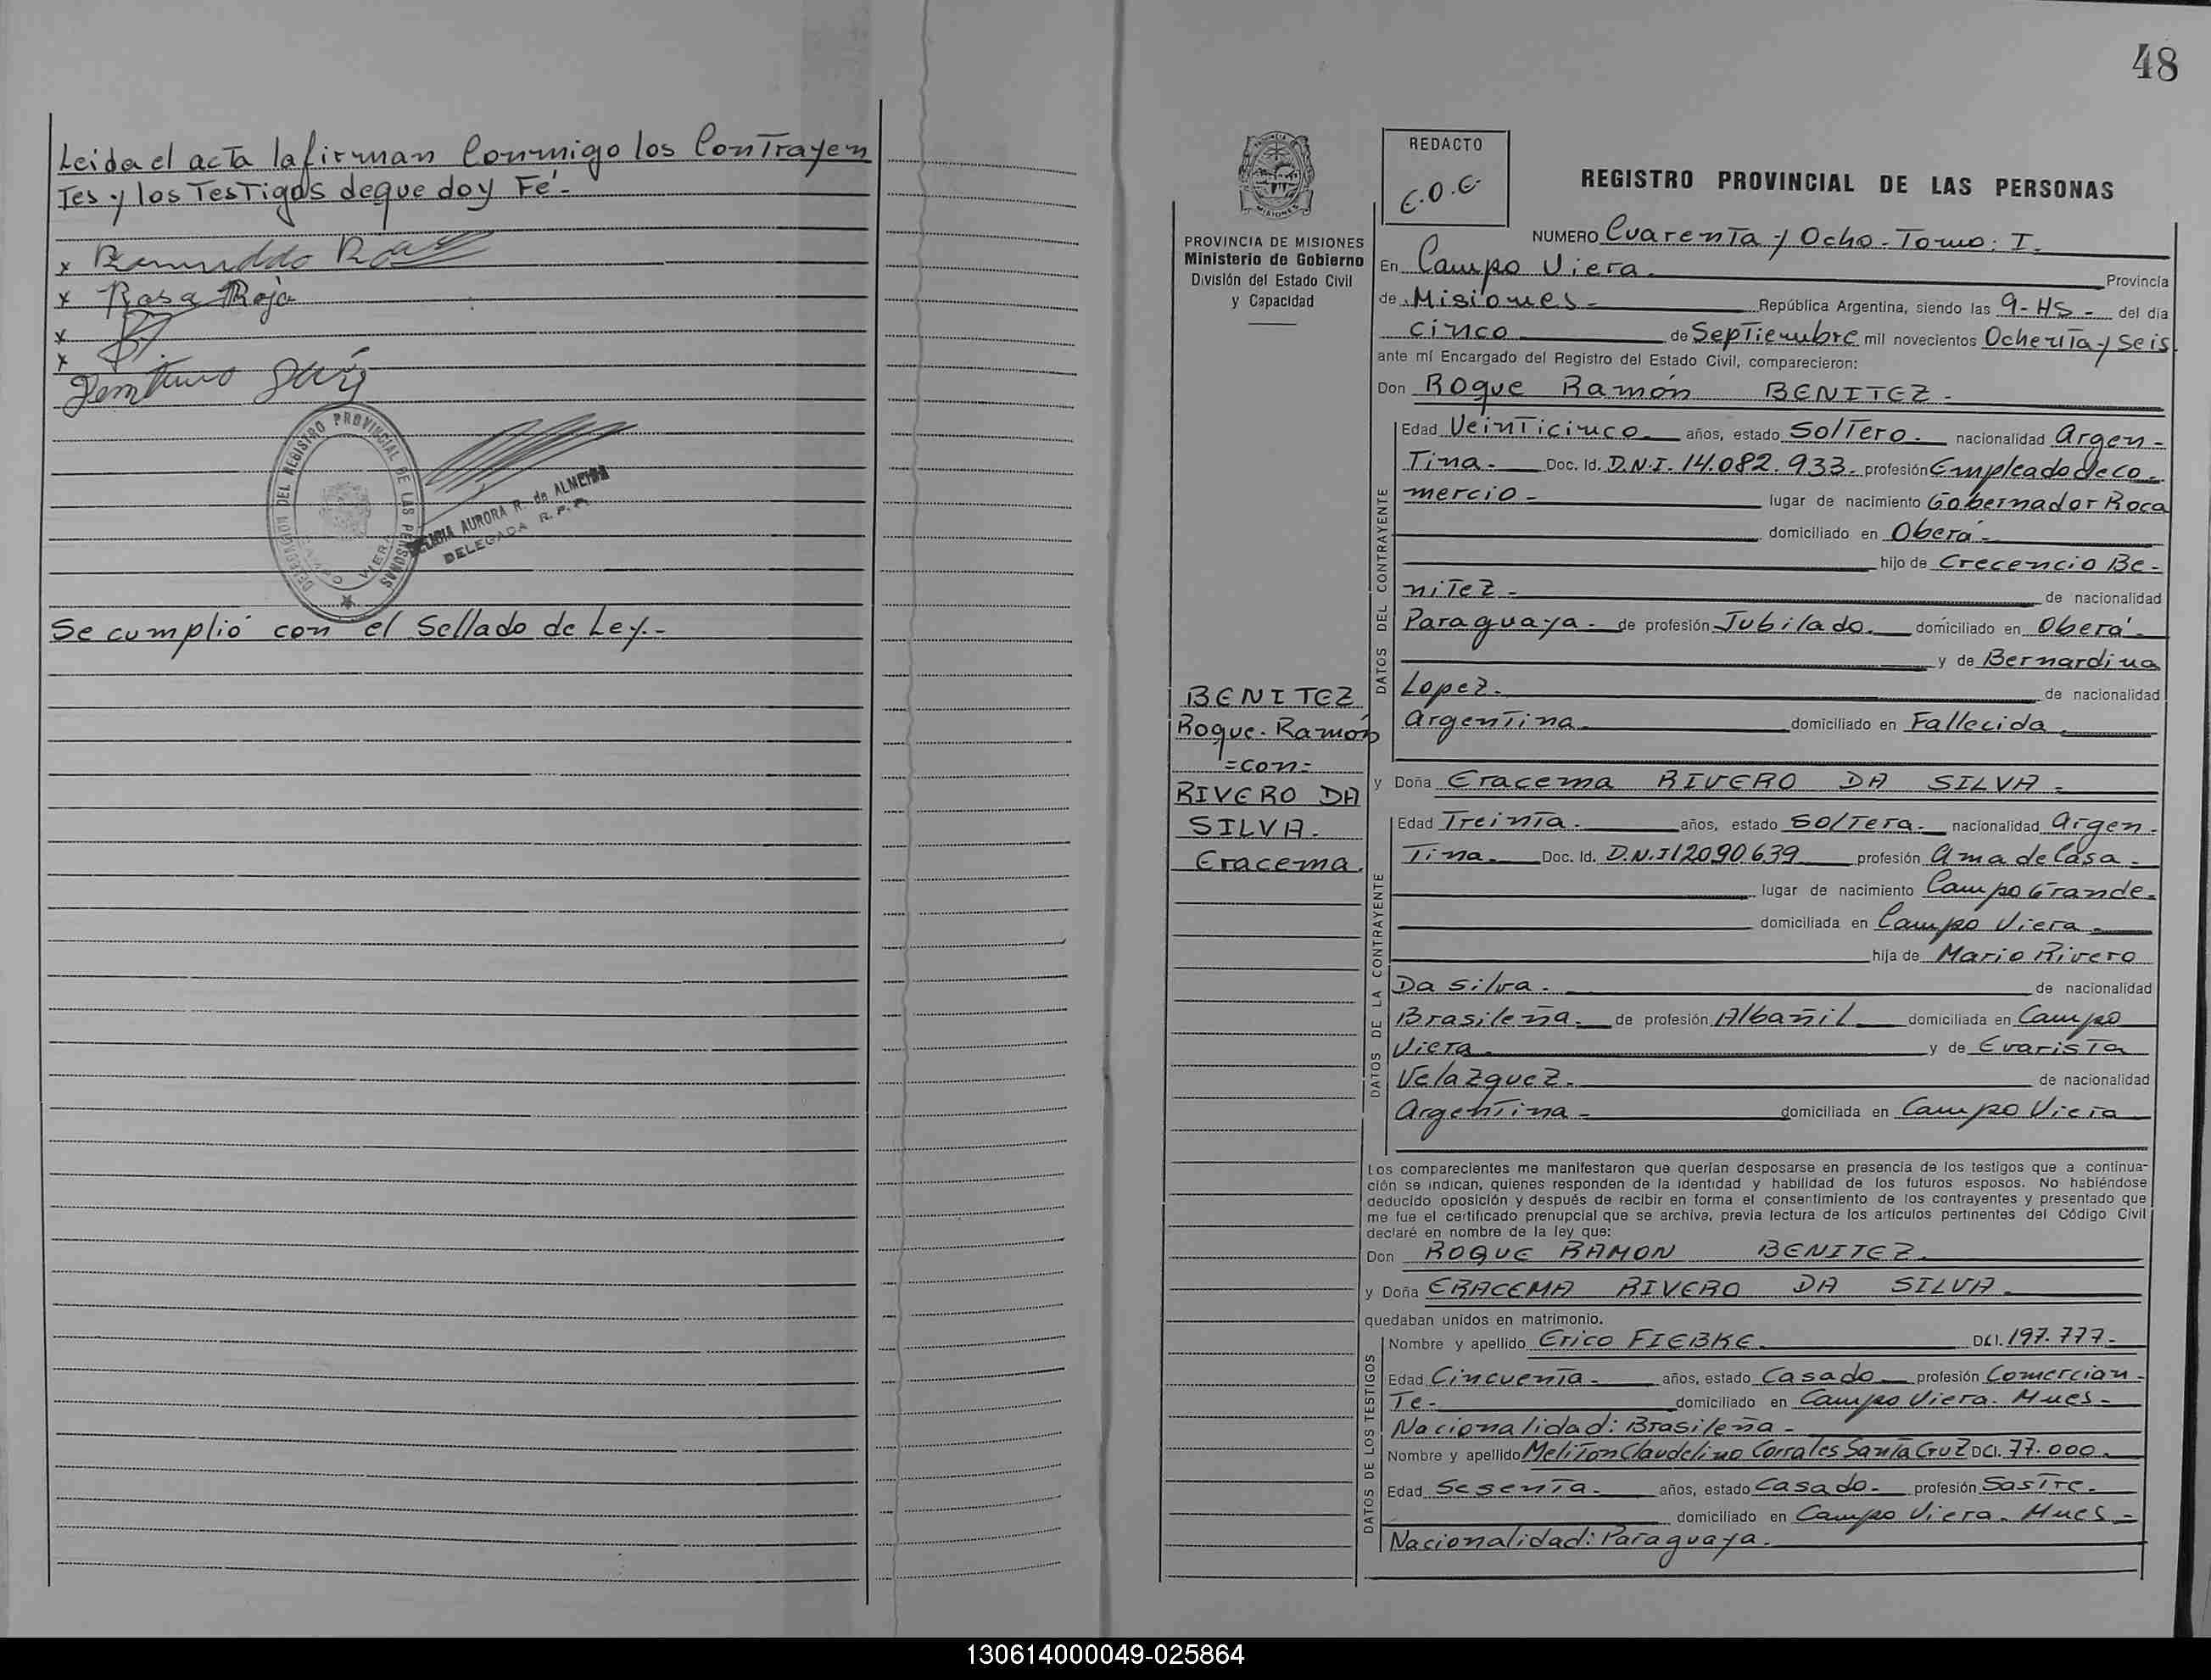 Leida el acta la firman Conmigo los Contrayen
Tes y los Testigos de que doy Fé.-
x
x Rosa Roja
x
x
DELEGACION DEL REGISTRO PROVINCIAL DE LAS PERSONAS
CAMPO VIERA
MARIA AURORA R. de ALMEIDA
DELEGADA R. P. P.
Se cumplió con el Sellado de Ley.-
48
PROVINCIA DE MISIONES
Ministerio de Gobierno
División del Estado Civil
y Capacidad
BENITEZ
Roque. Ramón
=con=
RIVERO DA
SILVA.
Eracema.
REDACTO
C.O.C.
REGISTRO PROVINCIAL DE LAS PERSONAS
NUMERO Cuarenta y Ocho. Tomo: I.
En Campo Viera. Provincia
de Misiones - República Argentina, siendo las 9-HS- del día
cinco de Septiembre mil novecientos Ochenta y Seis
ante mí Encargado del Registro del Estado Civil, comparecieron:
Don Roque Ramón BENITEZ.
DATOS DEL CONTRAYENTE
Edad Veinticinco años, estado Soltero. nacionalidad Argen-
Tina. Doc. Id. D.N.I. 14.082.933. profesión Empleado de co-
mercio - lugar de nacimiento Gobernador Roca
domiciliado en Oberá.
hijo de Crecencio Be-
nitez - de nacionalidad
Paraguaya. de profesión Jubilado. domiciliado en Oberá.
y de Bernardina
Lopez. de nacionalidad
Argentina. domiciliado en Fallecida.
y Doña Eracema RIVERO DA SILVA.
DATOS DE LA CONTRAYENTE
Edad Treinta. años, estado Soltera. nacionalidad Argen-
Tina. Doc. Id. D.N.I 12090639 profesión Ama de Casa.
lugar de nacimiento Campo Grande.
domiciliada en Campo Viera.
hija de Mario Rivero
Da Silva. de nacionalidad
Brasileña. de profesión Albañil domiciliada en Campo
Viera. y de Evarista
Velazquez. de nacionalidad
Argentina - domiciliada en Campo Viera
Los comparecientes me manifestaron que querían desposarse en presencia de los testigos que a continua-
ción se indican, quienes responden de la identidad y habilidad de los futuros esposos. No habiéndose
deducido oposición y después de recibir en forma el consentimiento de los contrayentes y presentado que
me fue el certificado prenupcial que se archiva, previa lectura de los artículos pertinentes del Código Civil
declaré en nombre de la ley que:
Don ROQUE RAMON BENITEZ.
y Doña ERACEMA RIVERO DA SILVA.
quedaban unidos en matrimonio.
DATOS DE LOS TESTIGOS
Nombre y apellido Erico FIEBKE. D.C.I. 197.777.
Edad Cincuenta. años, estado Casado profesión Comercian-
Te. domiciliado en Campo Viera. Mnes-
Nacionalidad: Brasileña -
Nombre y apellido Meliton Claudelino Corrales Santa Cruz D.C.I. 77.000.
Edad Sesenta. años, estado Casado. profesión Sastre.
domiciliado en Campo Viera. Mnes-
Nacionalidad: Paraguaya.
130614000049-025864